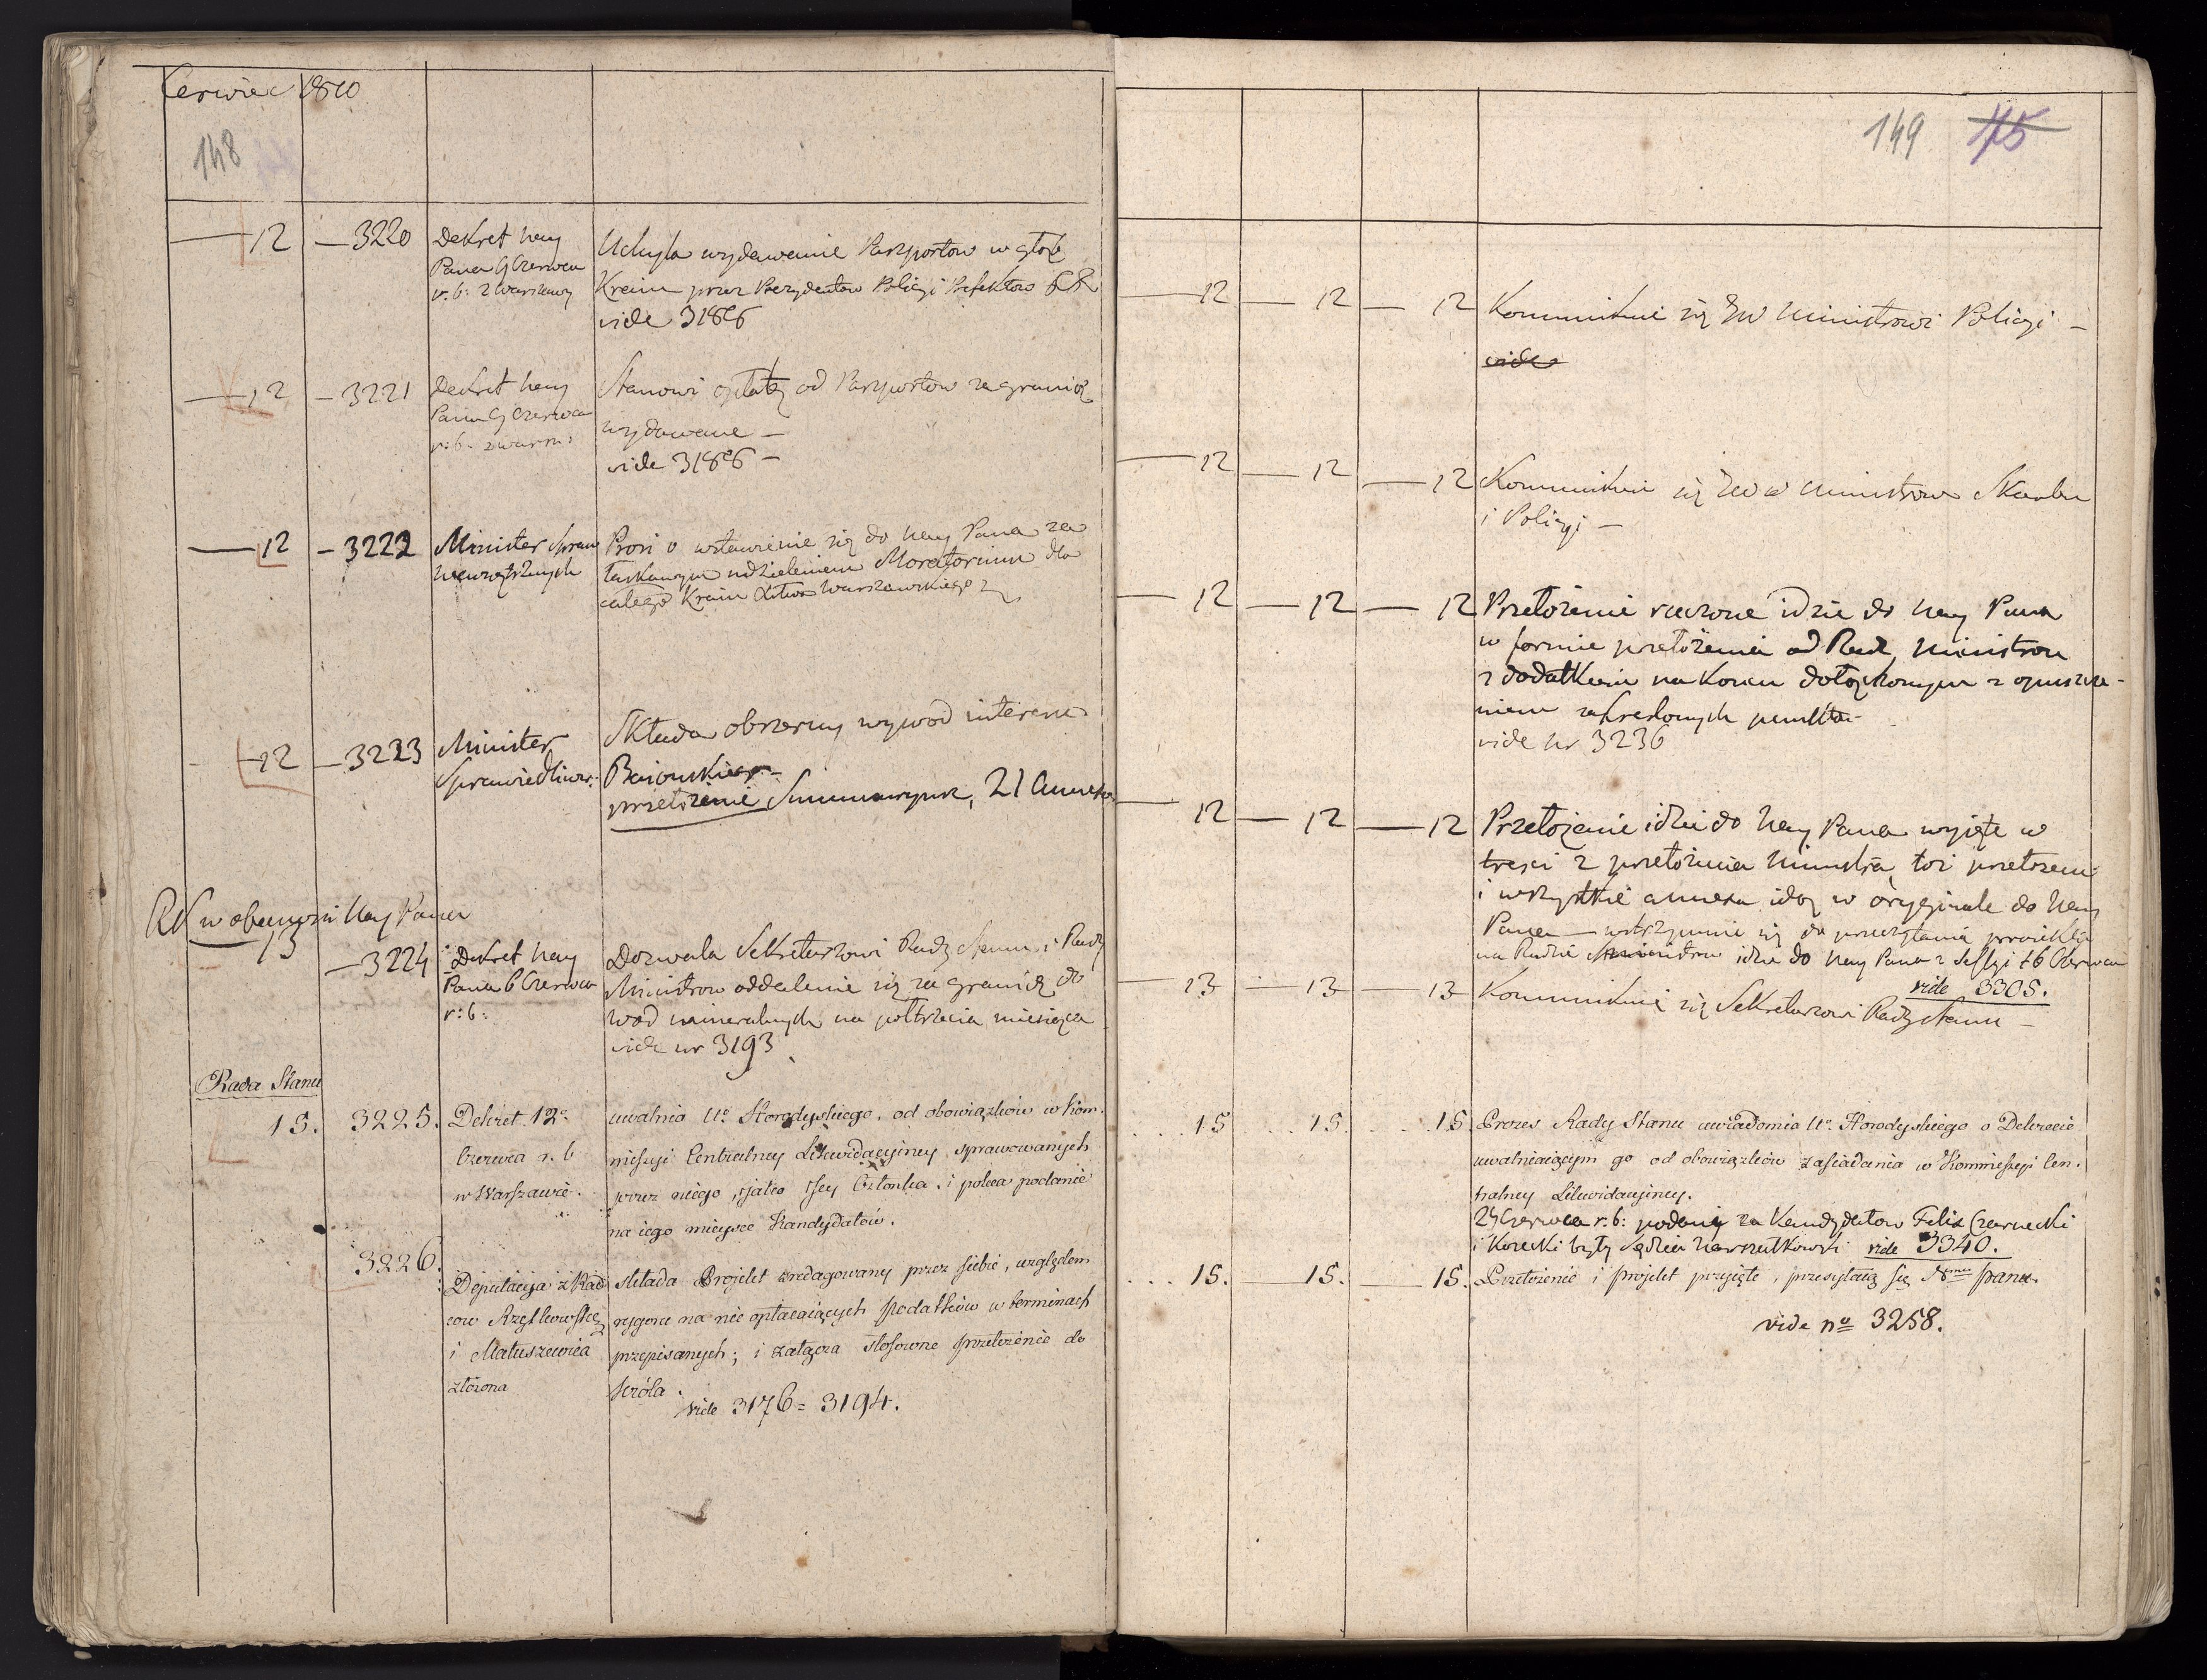 Czerwiec 1810
148
12 — 3220 Dekret Nay
Pana 9 Czerwca
r. b: z Warszawy
Uchyla wydawanie Paszportow w głąb
Kraiu przez Prezydentow Policyi Prefektow
vide 3186
12 — 3221 Dekret Nay
Pana 9 Czerwca
r: b. z Warsz:
Stanowi opłatę od Paszportow za granicę
wydawane —
vide 3186 —
12 — 3222 Minister Spraw
Wewnętrznych
Prosi o wstawienie się do Nay Pana za
łaskawym udzieleniem Moratorium dla
całego Kraiu Xistwa Warszawskiego
12 — 3223 Minister
Sprawiedliwos:
Składa obszerny wywod interessu
przełożenie Summaryusz, 21 annexa
w obecnosci Nay Pana
13
— 3224 Dekret Nay
Pana 6 Czerwca
r: b:
Dozwala Sekretarzowi Rady Stanu i Rady
Ministrow oddalenie się za granicę do
wod mineralnych na połtrzecia miesiąca
vide nr 3193
Rada Stanu
15. 3225. Dekret 12º
Czerwca r. b
w Warszawie.
uwalnia Uº Horodyskiego, od obowiązków w Kom.
missyi Centralney Likwidacyiney sprawowanych
przez niego, jako Jey Członka. i poleca podanie
na iego mieysce Kandydatów.
3226.
Deputacya z Rad
cow
i Matuszewica
złożona
składa Projekt zredagowany przez siebie, względem
rygoru na nie opłacaiących podatków w terminach
przepisanych; i załącza stosowne przełożenie do
króla.
vide 3176 = 3194.
149 75
12 — 12 — 12 Kommunikuie się JW Ministrowi Policyi —
vide
12 — 12 — 12 Kommunikuie się Ministrow Skarbu
i Policyi —
12 — 12 — 12 Przełożenie rzeczone idzie do Nay Pana
w formie przełożenia od Rady Ministrow
z dodatkiem na Koncu dołączonym z opuszcze-
niem zakreslonych punktow
vide Nr 3236
12 — 12 — 12 Przełożenie idzie do Nay Pana wyięte w
tresci z przełożenia Ministra, toż przełożenie
i wszystkie annexa idą w oryginale do Nay
Pana — wstrzymuie się do przeczytania proiektu
na Radzie Ministrow idzie do Nay Pana z Sessyi 16 Czerwca
vide 3305.
13 — 13 — 13 Kommunikuie się Sekretarzowi Rady Stanu —
15 15. 15. Prezes Rady Stanu uwiadomia Uº Horodyskiego o Dekrecie
uwalniaiącym go od obowiązków zasiadania w Kommissyi Cen.
tralney Likwidacyiney.
29 Czerwca r. b: podani za Kandydatow Felix Czarnecki
i Korecki były Sędzia vide 3340.
15. 15. 15. Przełożenie i projekt przyięte, przesyłaią się Nmu panu.
vide nº 3258.